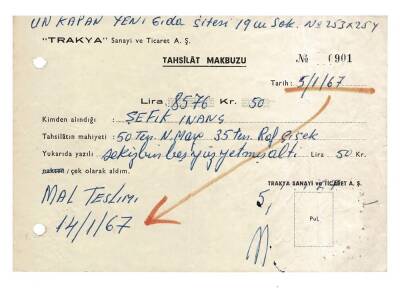 UN KAPAN YENİ Gıda Sitesi 19 uu Sok. No 253X254
"TRAKYA" Sanayi ve Ticaret A. Ş.
TAHSİLÂT MAKBUZU
No 0901
Tarih: 5/1/67
Lira 8576 Kr. 50
Kimden alındığı : ŞEFİK INANÇ
Tahsilâtın mahiyeti : 50 Ten. 35 Ten.
Yukarıda yazılı sekizbinbeşyüzyetmişaltı Lira 50 Kr.
nakten / çek olarak aldım.
TRAKYA SANAYİ ve TİCARET A. Ş.
MAL TESLİMİ
14/1/67
Pul